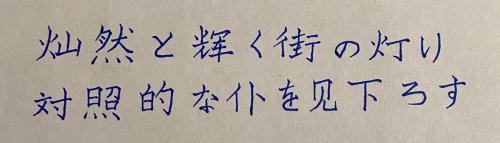 灿然と輝く街の灯り
対照的な仆を见下ろす